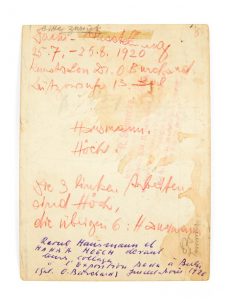 bitte zurück
Dada-
25-7.-25.8.1920
Kunstsalon Dr. O Burchard
Lützowufer 13
Hausmann.
Höch:
Die 3 linken Arbeiten
sind Höch,
die übrigen 6: Hausmann
Raoul Hausmann et
HANNA HOECH devant
leurs collages
à l'Exposition Dada à Berlin
(gal. O. Burchard) Juillet-Août 1920